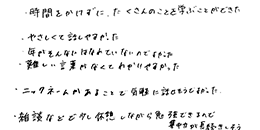 ・時間をかけずに、たくさんのことを学ぶことができた
・やさしくて話しやすかった
・年がそんなにはなれていないのでよかった
・難しい言葉がなくてわかりやすかった
・ニックネームがあることで気軽に話せそうじゃった。
・雑談などで少し休憩しながら勉強できるので
集中力が長続きしそう